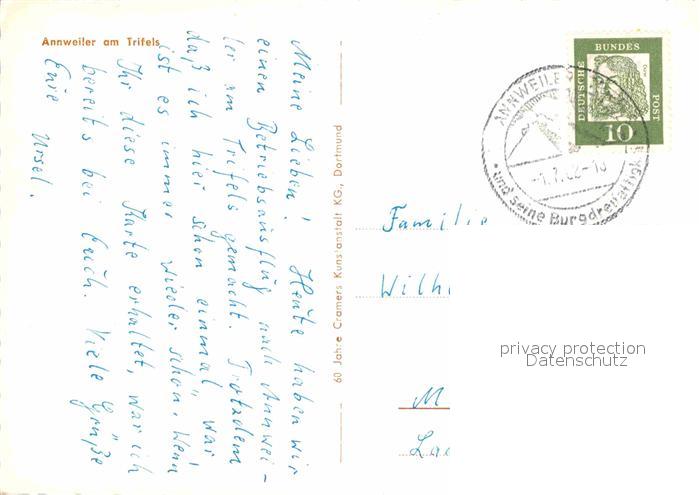 Annweiler am Trifels
Meine Lieben! Heute haben wir
einen Betriebsausflug nach Annwei-
ler am Trifels gemacht. Trotzdem
daß ich hier schon einmal war
ist es immer wieder schön. Wenn
Ihr diese Karte erhaltet, war ich
bereits bei Euch. Viele Grüße
Eure Ursel.
60 Jahre Cramers Kunstanstalt KG., Dortmund
DEUTSCHE
BUNDES
POST
10
ANNWEILER
und seine Burgdreifaltigk
Familie
Wilh
M
La
privacy protection
Datenschutz